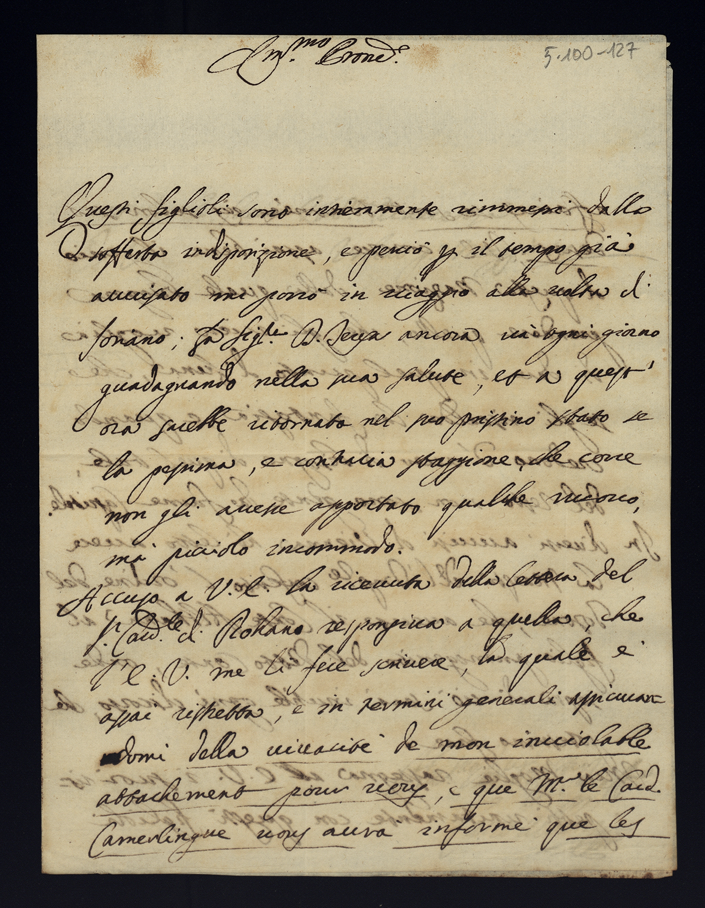 Em.mo Prone.
5.100-127
Questi figlioli sono intieramente rimmessi dalla
sofferta indisposizione, e perciò p il tempo già
avvisato mi porrò in viaggio alla volta di
Soriano; Sig.re D. ancora và ogni giorno
guadagnando nella sua salute, et a quest'
ora sarebbe ritornato nel suo pristino stato se
la pessima, e contraria staggione, che corre
non gli avesse apportato qualche nuovo,
mà picciolo incommodo.
Accuso a V. E. la ricevuta della lettera del
S. Card.le di Rohano responsiva a quella, che
l'E. V. me li fece scrivere, la quale è
assai ristretta, e in termini generali assicuran
domi della vivacité de mon inviolable
attachement pour vous, e que Mr. le Card.
Camerlingue vous aura informé que les